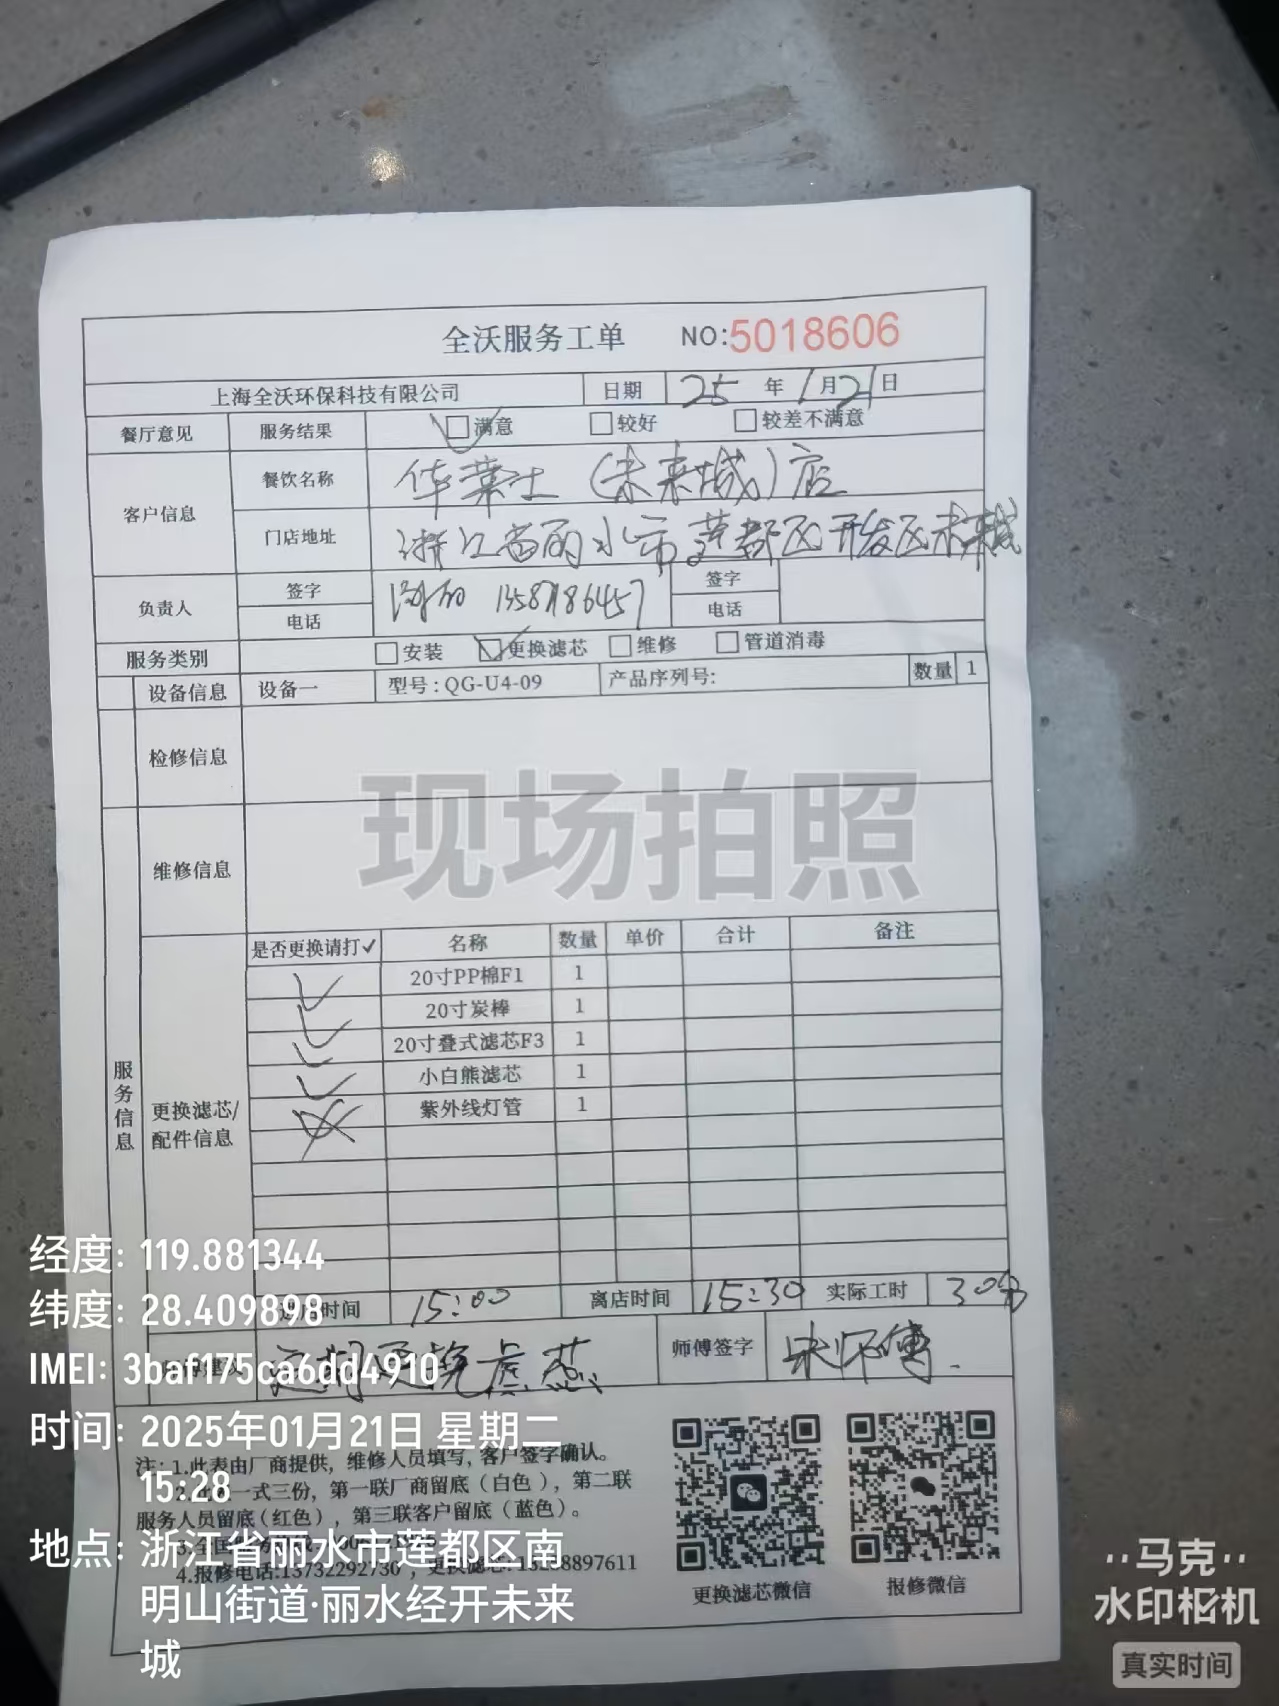 全沃服务工单 NO:5018606
上海全沃环保科技有限公司 日期 25 年 1 月 21 日
餐厅意见 服务结果 满意 较好 较差不满意
客户信息 餐饮名称 华莱士(未来城)店
门店地址 浙江省丽水市莲都区开发区未来城
负责人 签字 签字
电话 电话
服务类别 安装 更换滤芯 维修 管道消毒
设备信息 设备一 型号:QG-U4-09 产品序列号: 数量 1
检修信息
现场拍照
维修信息
服务信息
更换滤芯/
配件信息
是否更换请打✓ 名称 数量 单价 合计 备注
✓ 20寸PP棉F1 1
✓ 20寸炭棒 1
✓ 20寸叠式滤芯F3 1
✓ 小白熊滤芯 1
紫外线灯管 1
进店时间 15:00 离店时间 15:30 实际工时 30分
定期更换滤芯 师傅签字 宋师傅
注:1.此表由厂商提供,维修人员填写,客户签字确认。
一式三份,第一联厂商留底(白色),第二联
服务人员留底(红色),第三联客户留底(蓝色)。
3.全国
4.报修电话:13732292730,更换滤芯:
更换滤芯微信 报修微信
经度: 119.881344
纬度: 28.409898
IMEI: 3baf175ca6dd4910
时间: 2025年01月21日 星期二
15:28
地点: 浙江省丽水市莲都区南
明山街道·丽水经开未来
城
马克
水印相机
真实时间